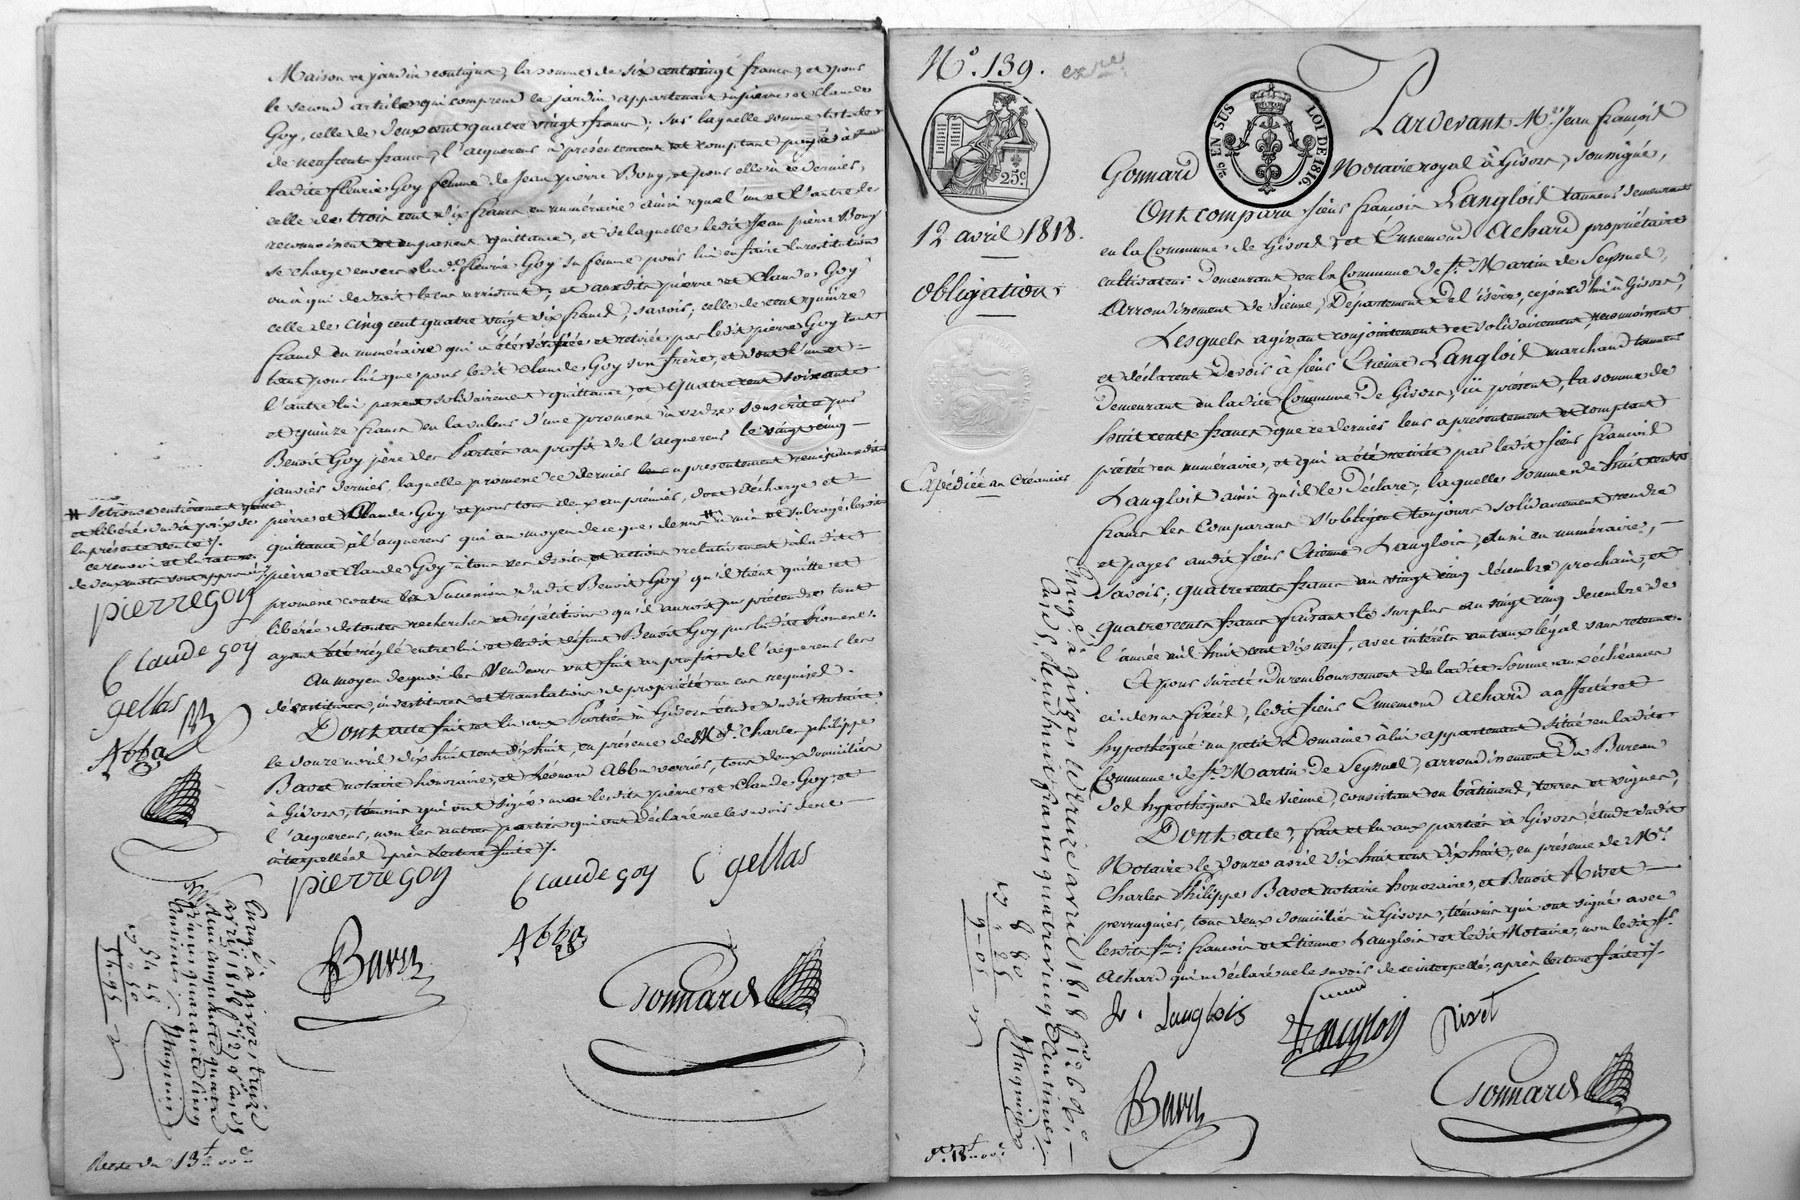 Maison et jardin contigus, la somme de six cent vingt francs, et pour
le second article qui comprend le jardin appartenant à pierre et Claude
Goy, celle de deux cent quatre vingt francs; sur laquelle somme totale
de neuf cent francs, l'acquereur a présentement et comptant payé à
ladite fleurie Goy femme de Jean pierre Bony, et pour elle à ce dernier,
celle de trois cent dix francs en numéraire ainsi que l'un et l'autre le
reconnoissent et en passent quittance, et de laquelle ledit Jean pierre Bony
se charge envers lad.e fleurie Goy sa femme pour lui en faire la restitution
ou à qui de droit le cas arrivant; et auxdits pierre et Claude Goy
celle de cinq cent quatre vingt dix francs, savoir; celle de cent quinze
francs en numéraire qui a été vérifiée et retirée par ledit pierre Goy tant
pour lui que pour ledit Claude Goy son frère, et dont l'un et
l'autre lui passent solidairement quittance, et quatre cent soixante
et quinze francs en la valeur d'une promesse à ordre souscrite par
Benoit Goy père des Parties au profit de l'acquereur le vingt cinq
janvier dernier, laquelle promesse ce dernier a présentement remise auxdits
pierre et Claude Goy et pour tous deux au premier, dont décharge et
quittance à l'acquereur qui au moyen de ce que dessus # a mis et subrogé lesdits
pierre et Claude Goy à tous ses droits et actions relativement à ladite
promesse contre la Succession dudit Benoit Goy qu'il tient quitte et
libérée de toutes recherches et répétitions qu'il auroit pu prétendre tout
ayant été réglé entre lui et ledit défunt Benoit Goy par ladite promesse.
Au moyen de quoi les Vendeurs ont fait au profit de l'acquereur les
dévestitures, investitures et translations de propriété en cas requises.
Dont acte fait et lu aux Parties à Givors étude dudit notaire
le douze avril dix huit cent dix huit, en présence de M.rs Charles philippe
Bavet notaire honoraire, et Léonard Abba verrier, tous deux domiciliés
à Givors, témoins qui ont signé avec lesdits pierre et Claude Goy, et
l'acquereur, non les autres parties qui ont déclaré ne le savoir de ce
interpellées après lecture faite /.
# se trouve entièrement quitte
et libéré dudit prix de
la présente vente /.
ce renvoi et la rature
de deux mots sont approuvés
pierre goy
Claude goy
gellas
Abba
pierre goy Claude goy C gellas
Bavet Abba
Gonnard
Enregé à givors treize
avril 1818
cinquante quatre
francs quarante cinq
centimes /. Muguier
54 45
" 50
54-95
13
N.o 139.
25c
12 avril 1818.
Obligation
Expédiée au Créancier
EN SUS LOI DE 1816.
Pardevant M.e Jean François
Gonnard Notaire royal à Givors, soussigné,
Ont comparu sieur François Langlois tanneur demeurant
en la Commune de Givors, et Ennemond Achard propriétaire
cultivateur demeurant en la Commune de St. Martin de Seyssuel,
Arrondissement de Vienne, Département de l'isère, ce jourd'hui à Givors,
Lesquels agissant conjointement et solidairement, reconnoissent
et déclarent devoir à sieur Etienne Langlois marchand tanneur
demeurant en ladite Commune de Givors, ici présent, la somme de
huit cents francs que ce dernier leur a présentement et comptant
prêtée en numéraire, et qui a été retirée par ledit sieur François
Langlois ainsi qu'il le déclare; laquelle somme de huit cents
francs les comparans s'obligent toujours solidairement rendre
et payer audit sieur Etienne Langlois, aussi en numéraire,
Savoir; quatre cents francs au vingt cinq décembre prochain, et
quatre cents francs faisant le surplus au vingt cinq décembre de
l'année mil huit cent dix neuf, avec intérêts au taux légal sans retenue.
Et pour sûreté du remboursement de ladite somme aux échéances
ci-dessus fixées, ledit sieur Ennemond Achard a affecté et
hypothéqué un petit Domaine à lui appartenant situé en ladite
Commune de St. Martin de Seyssuel, arrondissement du Bureau
des hypothèques de Vienne, consistant en bâtimens, terres et vignes,
Dont acte, fait et lu aux parties à Givors, étude dudit
Notaire le douze avril dix huit cent dix huit, en présence de M.rs
Charles Philippe Bavet notaire honoraire, et Benoit Rivet
perruquier, tous deux domiciliés à Givors, témoins qui ont signé avec
lesdits srs. François et Etienne Langlois et ledit Notaire, non ledit sr.
Achard qui a déclaré ne le savoir de ce interpellé, après lecture faite /.
fr. Langlois Langlois Rivet
Bavet Gonnard
Enregé à givors le treize avril 1818
huit francs quatre vingt centimes /.
Muguier
8 80
" 25
9-05